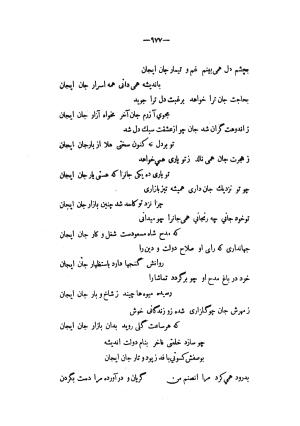 -۹۷۷-
بچشم دل همی بینم غم و تیمار جان ایجان
باندیشه همی دانی همه اسرار جان ایجان
بحاجت جان ترا خواهد برغبت دل ترا جوید
بجوی آزرم جان آخر مخواه آزار جان ایجان
ز اندوهت گران شد جان چو از عشقت سبك دل شد
تو بر دل نه کنون سختی هلا از بار جان ایجان
ز هجرت جان همی نالد ز تو یاری همی خواهد
تو یاری ده یکی جانرا که هستی یار جان ایجان
چو تو نزدیك جان داری همیشه تیز بازاری
چرا نزد تو کاسد شد چنین بازار جان ایجان
تو خود جانی چه رنجانی همی جانرا چو میدانی
که مدح شاه مسعودست شغل و کار جان ایجان
جهانداری که رای او صلاح دولت و دین را
روانش گنجها دارد باستظهار جان ایجان
خرد در باغ مدح او چو برگردد تماشا را
رسیده میوه‌ها چیند ز شاخ و بار جان ایجان
ز مهرش جان چو گلزاری شده زو زندگانی خوش
که هر ساعت گلی روید بدان بازار جان ایجان
چو سازد خلعتی فاخر بنام دولت اندیشه
بوصفش کسوتی بافد ز پود و تار جان ایجان
بدرود همی کرد مرا آنصنم من گریان و در آورده مرا دست بگردن